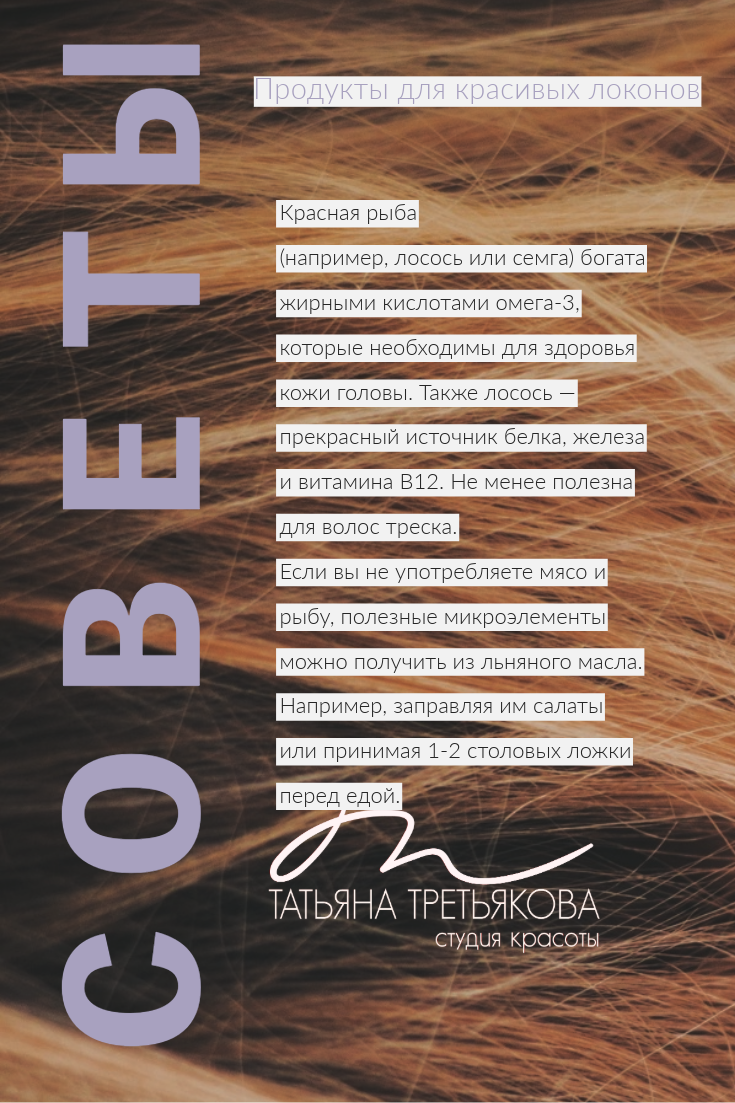 СОВЕТЫ
Продукты для красивых локонов
Красная рыба
(например, лосось или семга) богата
жирными кислотами омега-3,
которые необходимы для здоровья
кожи головы. Также лосось —
прекрасный источник белка, железа
и витамина В12. Не менее полезна
для волос треска.
Если вы не употребляете мясо и
рыбу, полезные микроэлементы
можно получить из льняного масла.
Например, заправляя им салаты
или принимая 1-2 столовых ложки
перед едой.
ТАТЬЯНА ТРЕТЬЯКОВА
студия красоты